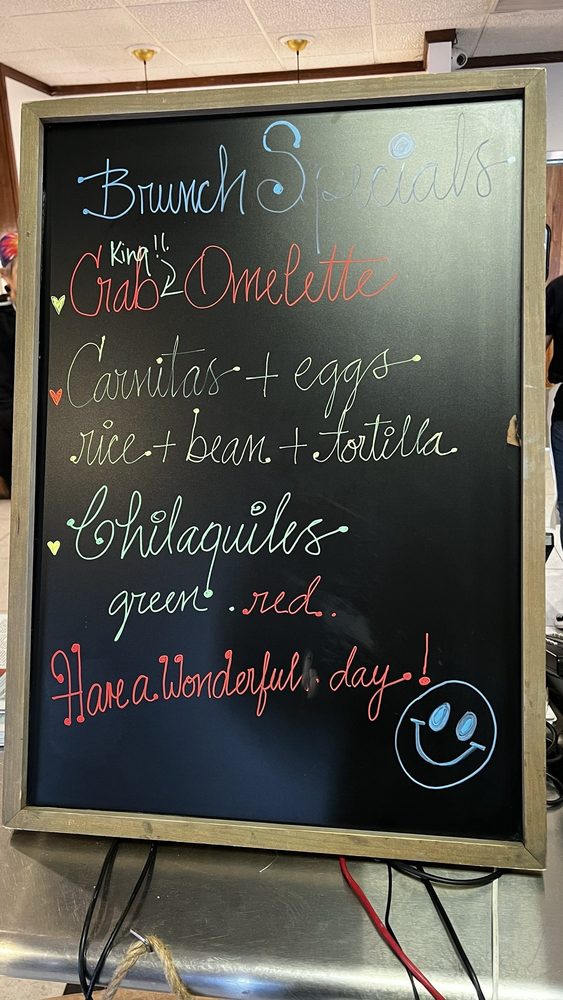 Brunch Specials
King!!
Crab Omelette
Carnitas + eggs
rice + bean + tortilla
Chilaquiles
green . red .
Have a Wonderful day !